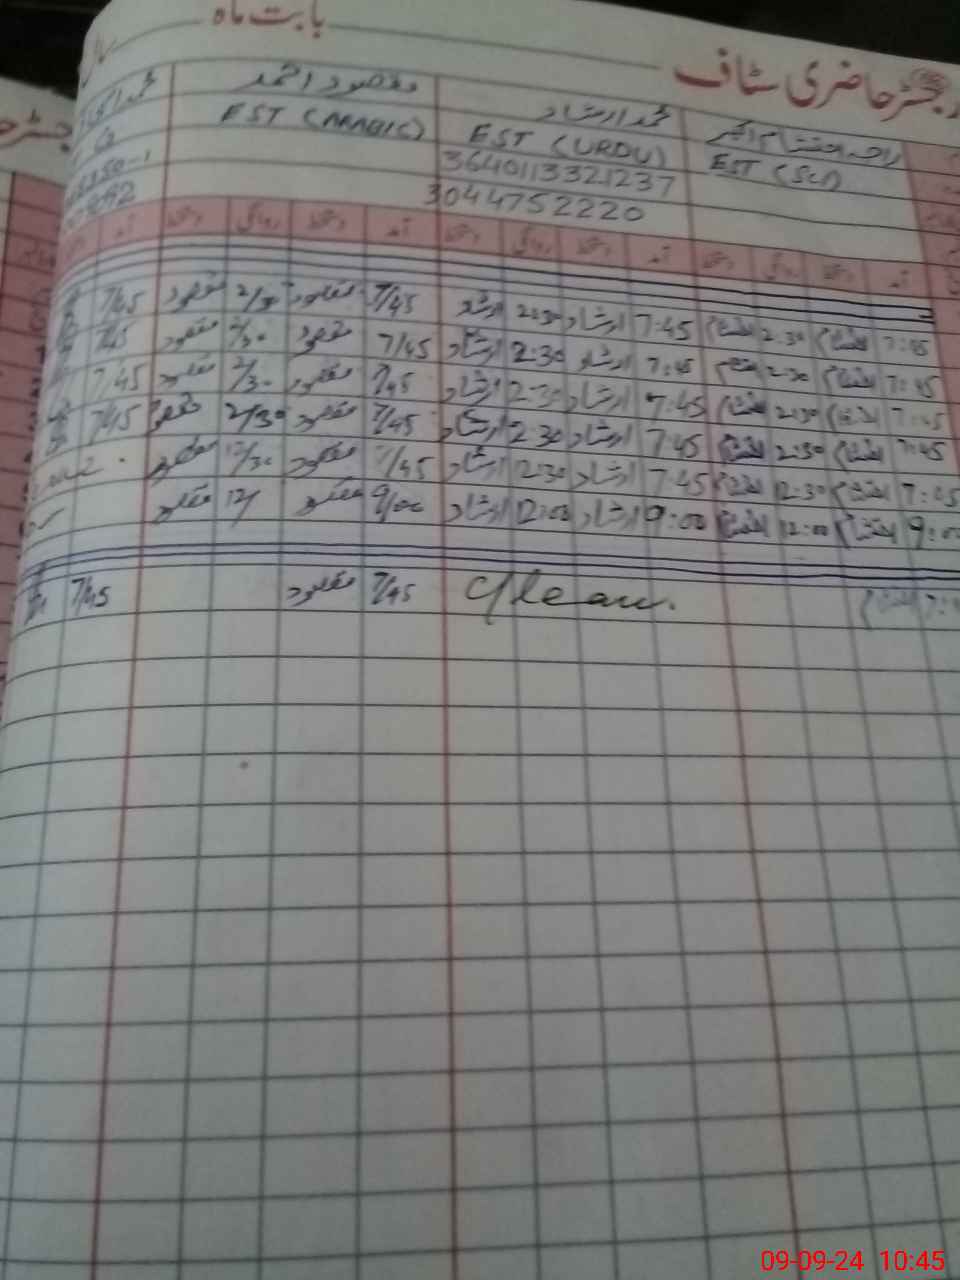 رجسٹر حاضری سٹاف بابت ماہ
راجہ احتشام اکبر محمد ارشاد مقصود احمد
EST (Sci) EST (URDU) EST (ARABIC)
3640113321237
3044752220
آمد دستخط روانگی دستخط آمد دستخط روانگی دستخط آمد دستخط روانگی دستخط آمد
7:45 احتشام 2:30 احتشام 7:45 ارشاد 2:30 ارشاد 7/45 مقصود 2/30 مقصود 7/45
7:45 احتشام 2:30 احتشام 7:45 ارشاد 2:30 ارشاد 7/45 مقصود 2/30 مقصود 7/45
7:45 احتشام 2:30 احتشام 7:45 ارشاد 2:30 ارشاد 7/45 مقصود 2/30 مقصود 7/45
7:45 احتشام 2:30 احتشام 7:45 ارشاد 2:30 ارشاد 7/45 مقصود 2/30 مقصود 7/45
7:45 احتشام 12:30 احتشام 7:45 ارشاد 12:30 ارشاد 7/45 مقصود 12/30 مقصود
9:00 احتشام 12:00 احتشام 9:00 ارشاد 12:00 ارشاد 9/00 مقصود 12/ مقصود
احتشام C/leave. 7/45 مقصود 7/45
09-09-24 10:45